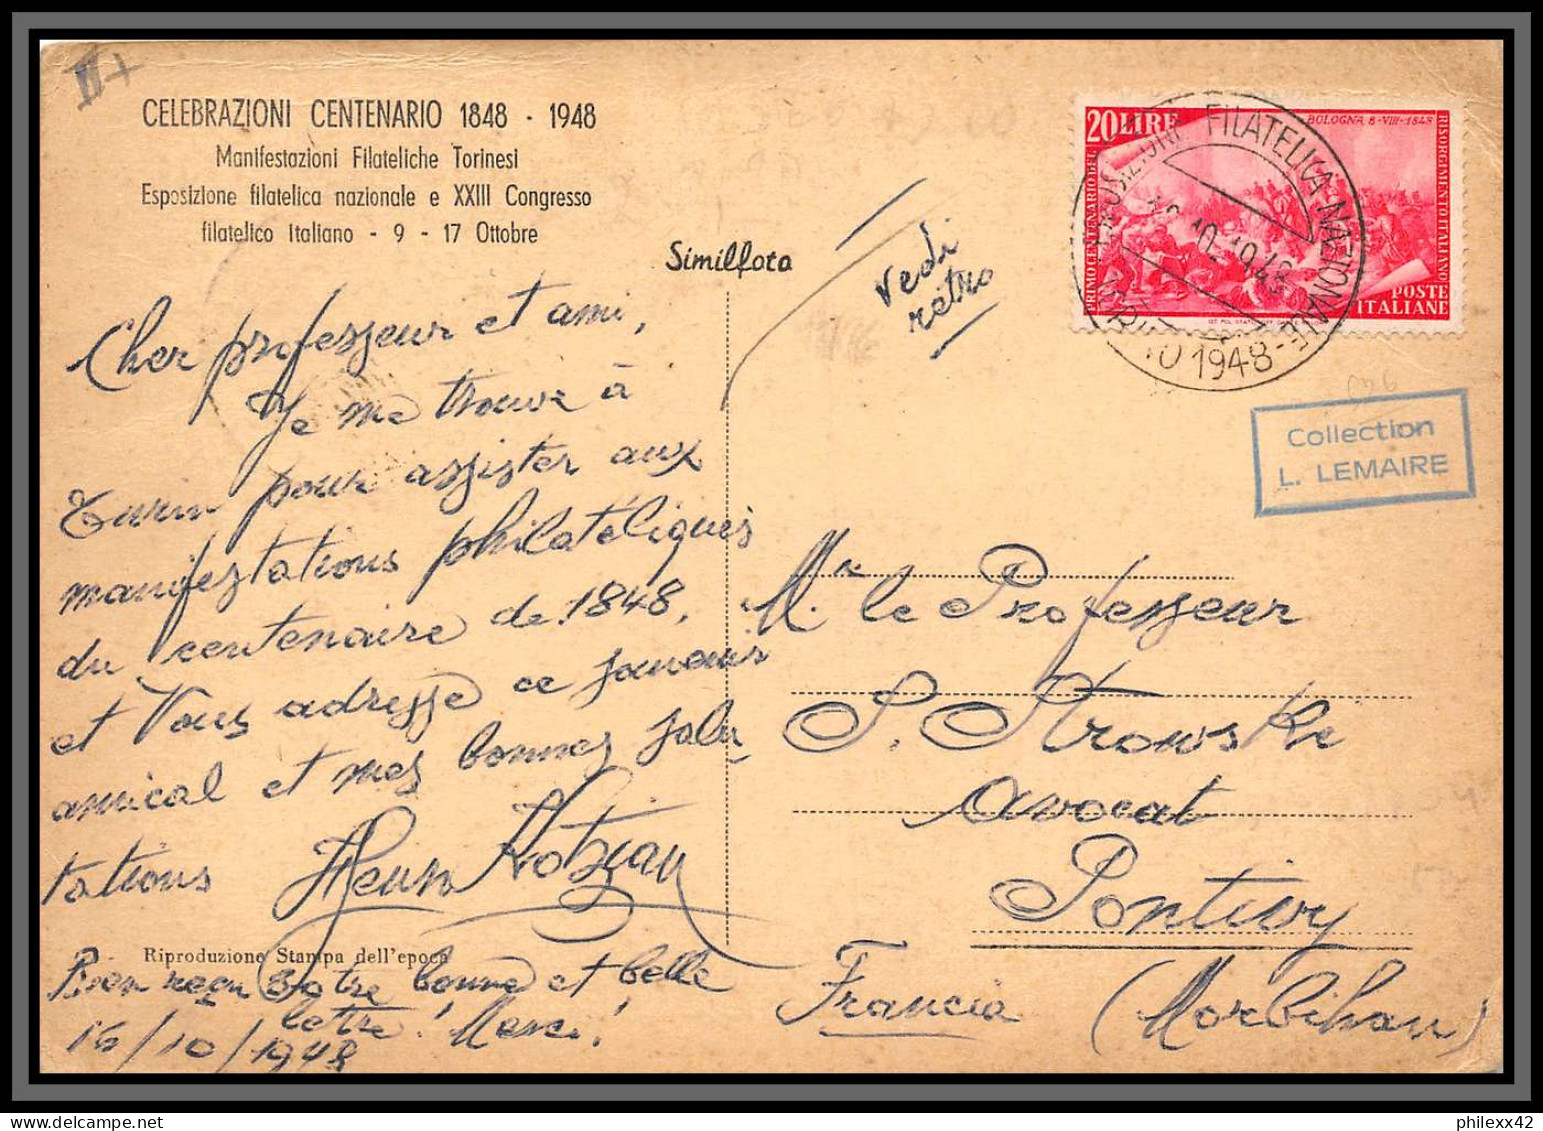 II+
CELEBRAZIONI CENTENARIO 1848 - 1948
Manifestazioni Filateliche Torinesi
Esposizione filatelica nazionale e XXIII Congresso
filatelico Italiano - 9 - 17 Ottobre
Similfoto
vedi
retro
20 LIRE
BOLOGNA 8-VIII-1848
PRIMO CENTENARIO DEL
RISORGIMENTO ITALIANO
POSTE
ITALIANE
ESPOSIZIONE FILATELICA NAZIONALE
10.1948
TORINO 1948
Collection
L. LEMAIRE
Cher professeur et ami,
Je me trouve à
Turin pour assister aux
manifestations philatéliques
du centenaire de 1848,
et Vous adresse ce souvenir
amical et mes bonnes salu
tations
Riproduzione Stampa dell'epoca
Bien reçu Votre bonne et belle
lettre! Merci!
16/10/1948
Mr. le Professeur
S. Strowski
avocat
Pontivy
Francia (Morbihan)
philexx42